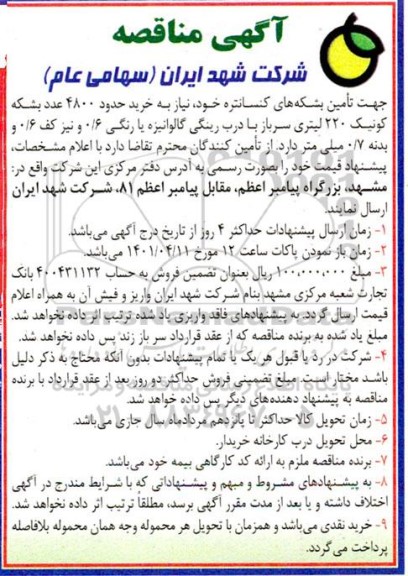 آگهی مناقصه
شرکت شهد ایران (سهامی عام)
جهت تأمین بشکه‌های کنسانتره خود، نیاز به خرید حدود ۴۸۰۰ عدد بشکه
کونیک ۲۲۰ لیتری سرباز با درب رینگی گالوانیزه یا رنگی ۰/۶ و نیز کف ۰/۶ و
بدنه ۰/۷ میلی متر دارد. از تأمین کنندگان محترم تقاضا دارد با اعلام مشخصات،
پیشنهاد قیمت خود را بصورت رسمی به آدرس دفتر مرکزی این شرکت واقع در:
مشهد، بزرگراه پیامبر اعظم، مقابل پیامبر اعظم ۸۱، شرکت شهد ایران
ارسال نمایند.
۱- زمان ارسال پیشنهادات حداکثر ۴ روز از تاریخ درج آگهی می‌باشد.
۲- زمان باز نمودن پاکات ساعت ۱۲ مورخ ۱۴۰۱/۰۴/۱۱ می‌باشد.
۳- مبلغ ۱۰۰,۰۰۰,۰۰۰ ریال بعنوان تضمین فروش به حساب ۴۰۰۴۳۱۱۳۲ بانک
تجارت شعبه مرکزی مشهد بنام شرکت شهد ایران واریز و فیش آن به همراه اعلام
قیمت ارسال گردد. به پیشنهادهای فاقد واریزی یاد شده ترتیب اثر داده نخواهد شد.
مبلغ یاد شده به برنده مناقصه که از عقد قرارداد سر باز زند پس داده نخواهد شد.
۴- شرکت در رد یا قبول هر یک یا تمام پیشنهادات بدون آنکه محتاج به ذکر دلیل
باشد مختار است. مبلغ تضمینی فروش حداکثر دو روز بعد از عقد قرارداد با برنده
مناقصه به پیشنهاد دهنده‌های دیگر پس داده خواهد شد.
۵- زمان تحویل کالا حداکثر تا پانزدهم مردادماه سال جاری می‌باشد.
۶- محل تحویل درب کارخانه خریدار.
۷- برنده مناقصه ملزم به ارائه کد کارگاهی بیمه خود می‌باشد.
۸- به پیشنهادهای مشروط و مبهم و پیشنهاداتی که با شرایط مندرج در آگهی
اختلاف داشته و یا بعد از مدت مقرر آگهی برسد، مطلقاً ترتیب اثر داده نخواهد شد.
۹- خرید نقدی می‌باشد و همزمان با تحویل هر محموله وجه همان محموله بلافاصله
پرداخت می‌گردد.